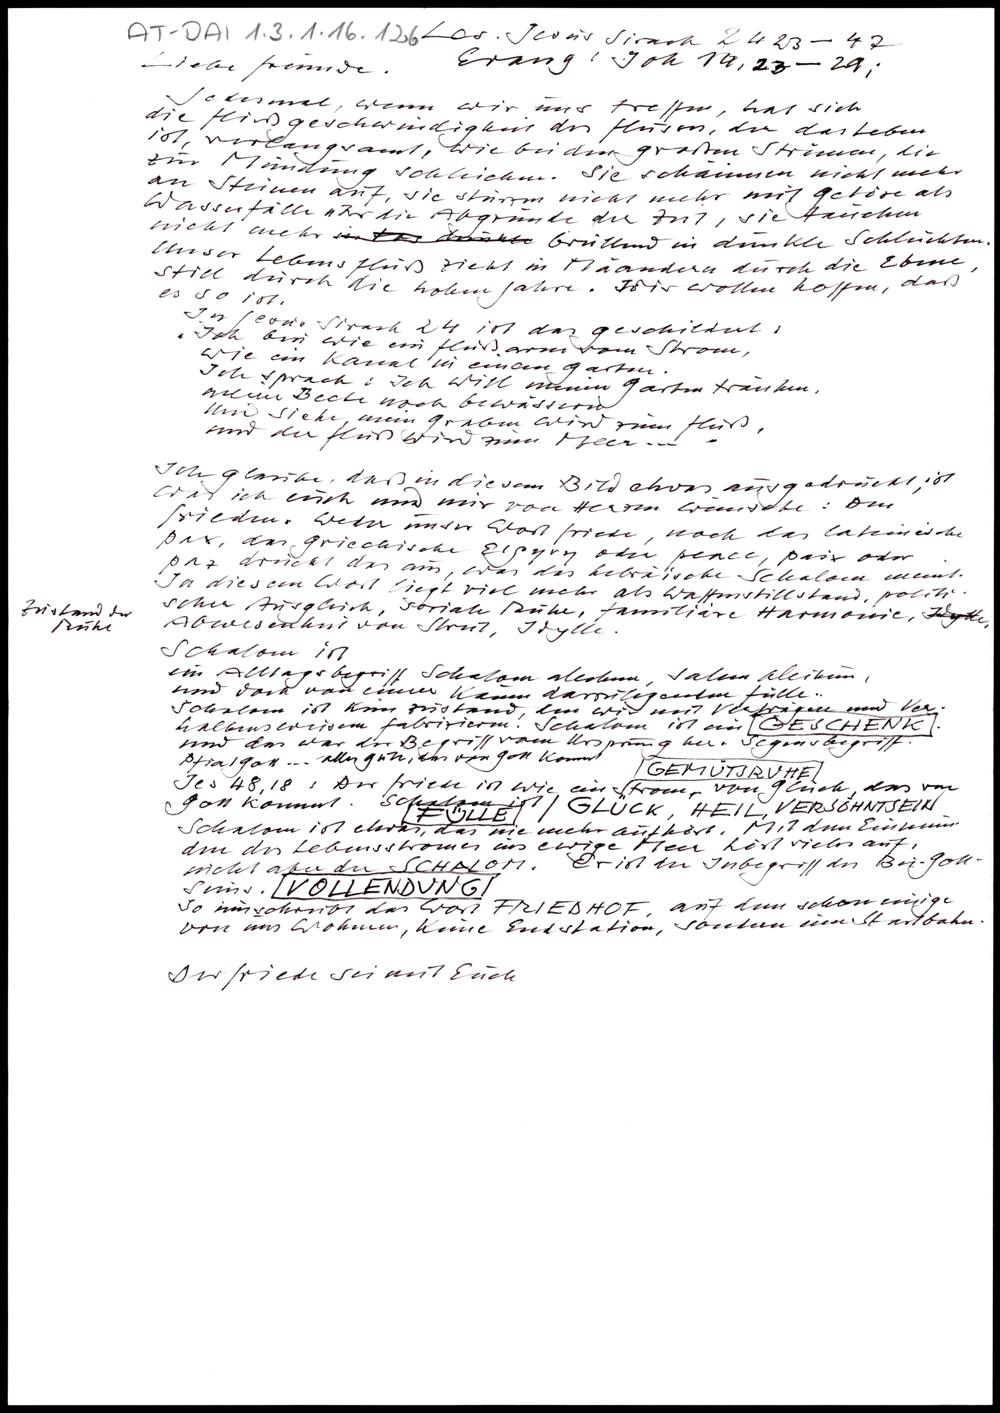 AT-DAI 1.3.1.16.126 Les. Jesus Sirach 24 23–47
Liebe Freunde. Evang: Joh 14, 23–29;
Jedesmal, wenn wir uns treffen, hat sich
die Fließgeschwindigkeit des Flusses, der das Leben
ist, verlangsamt, wie bei den großen Strömen, die
zur Mündung schleichen. Sie schäumen nicht mehr
an Steinen auf, sie stürzen nicht mehr mit Getöse als
Wasserfälle über die Abgründe der Zeit, sie tauchen
nicht mehr brüllend in dunkle Schluchten.
Unser Lebensfluß zieht in Mäandern durch die Ebene,
still durch die hohen Jahre. Wir wollen hoffen, daß
es so ist.
In Jesus Sirach 24 ist das geschildert:
Ich bin wie ein Flußarm vom Strom,
wie ein Kanal in einem Garten.
Ich sprach: Ich will meinen Garten tränken,
meine Beete noch bewässern
Und siehe, mein Graben wird zum Fluß,
und der Fluß wird zum Meer...
Ich glaube, daß in diesem Bild etwas ausgedrückt ist
was ich euch und mir von Herzen wünsche: Den
Frieden. Weder unser Wort Friede, noch das lateinische
pax, das griechische oder peace, paix oder
paz drückt das aus, was das hebräische Schalom meint.
In diesem Wort liegt viel mehr als Waffenstillstand, politi-
scher Ausgleich, soziale Ruhe, familiäre Harmonie, Idylle,
Zustand der Ruhe
Abwesenheit von Streit, Idylle.
Schalom ist
ein Alltagsbegriff Schalom alechem, Salem aleikum,
und doch von einer kaum darzulegenden Fülle..
Schalom ist kein Zustand, den wir mit Verträgen und Ver-
haltensweisen fabrizieren. Schalom ist ein GESCHENK.
und das war der Begriff vom Ursprung her. Segensbegriff.
... alles Gute, das von Gott kommt
GEMÜTSRUHE
Jes 48,18: Der Friede ist wie ein Strom, von Glück, das von
Gott kommt. Schalom ist / GLÜCK, HEIL, VERSÖHNTSEIN
FÜLLE
Schalom ist etwas, das nie mehr aufhört. Mit dem Einmün-
den des Lebensstromes ins ewige Meer hört vieles auf,
nicht aber der SCHALOM. Er ist der Inbegriff des Bei-Gott-
Seins. VOLLENDUNG
So umschreibt das Wort FRIEDHOF, auf dem schon einige
von uns wohnen, keine Endstation, sondern eine Startbahn.
Der Friede sei mit Euch